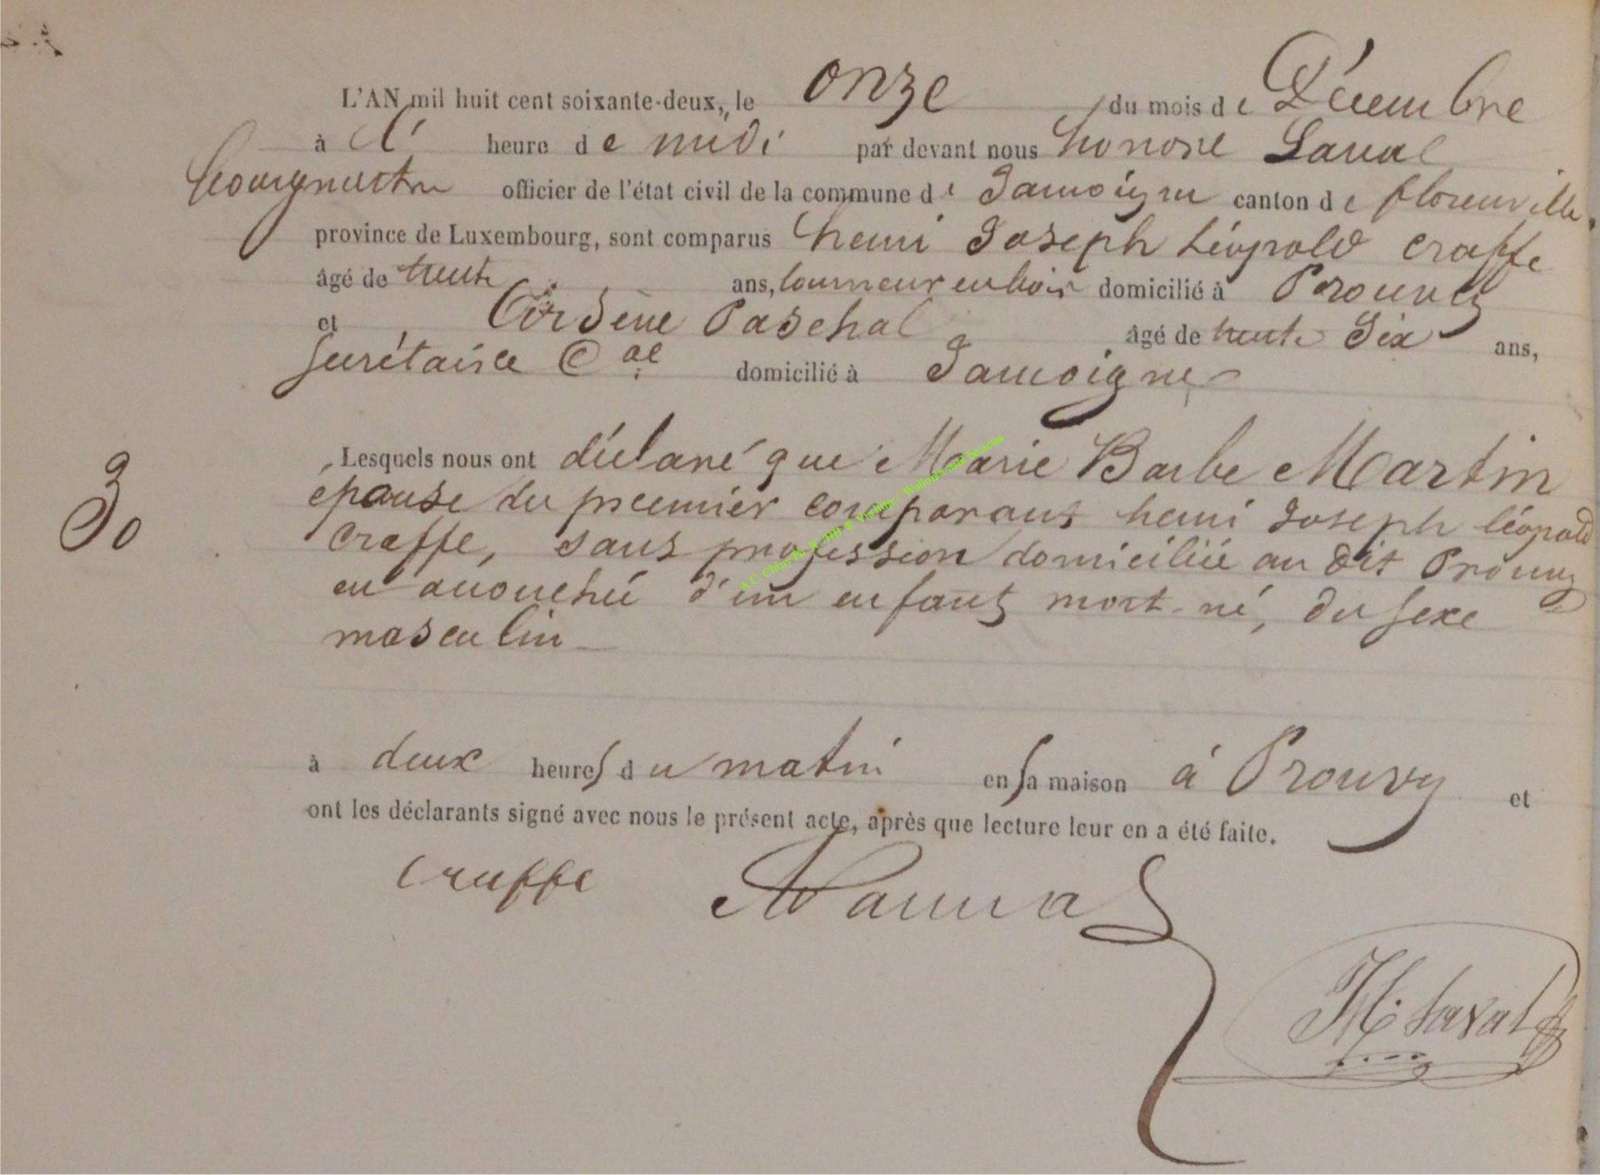 L'AN mil huit cent soixante-deux, le onze du mois de Décembre
à l' heure de midi par devant nous honoré Laval
bourgmestre officier de l'état civil de la commune de Jamoigne canton de florenville,
province de Luxembourg, sont comparus henri Joseph Léopold Craffe
âgé de trente ans, tourneur en bois domicilié à Prouvy
et Paschal âgé de trente Six ans,
Secrétaire Cal domicilié à Jamoigne
Lesquels nous ont déclaré que Marie Barbe Martin
30
épouse du premier comparant henri Joseph léopold
Craffe, sans profession domiciliée au dit Prouvy
en accouché d'un enfant mort-né, du Sexe
masculin
à deux heures du matin en sa maison à Prouvy et
ont les déclarants signé avec nous le présent acte, après que lecture leur en a été faite.
Craffe
H. Laval